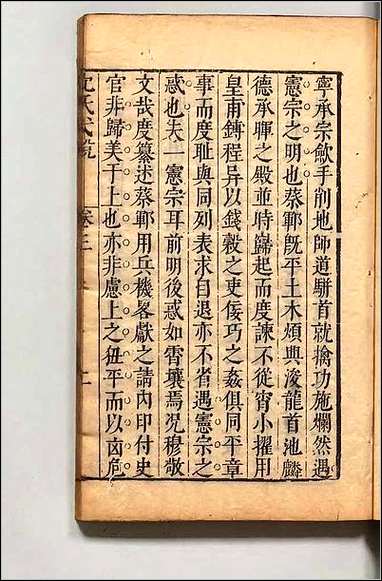 寧承宗歛手削地師道駢首就擒功施爛然遇
憲宗之明也蔡鄆既平土木煩興浚龍首池麟
德承暉之殿並時歸起而度諫不從宵小擢用
皇甫鏄程异以錢穀之吏佞巧之姦俱同平章
事而度耻與同列表求自退亦不省遇憲宗之
惑也夫一憲宗耳前明後惑如霄壤焉況穆敬
文哉度纂述蔡鄆用兵機畧獻之請內印付史
官非歸美于上也亦非慮上之狃平而以㐫危
沈氏弋說
卷三
二